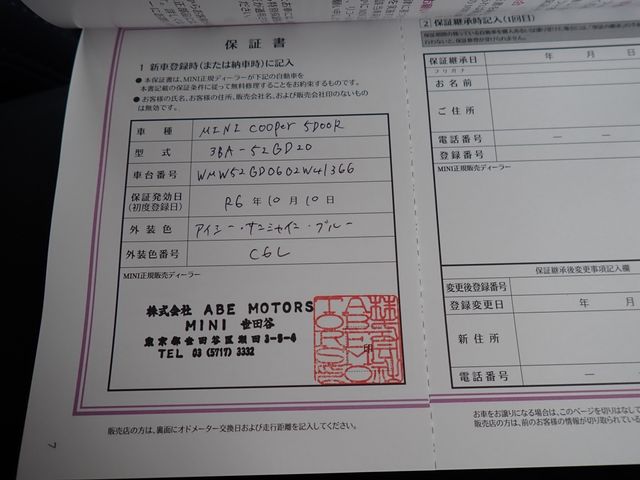 保証書
1 新車登録時(または納車時)に記入
● 本保証書は、MINI正規ディーラーが下記の自動車を
本書記載の保証条件に従って無料修理することをお約束するものです。
● お客様の氏名、お客様の住所、販売会社名、および販売会社印のないもの
は無効です。
車種 MINI COOPER 5DOOR
型式 3BA-52GD20
車台番号 WMW52GD0602W41366
保証発効日
(初度登録日) R6 年 10 月 10 日
外装色 アイシー・サンシャイン・ブルー
外装色番号 C6L
MINI正規販売ディーラー
株式会社 ABE MOTORS
MINI 世田谷
東京都世田谷区瀬田3-5-4
TEL 03 (5717) 3332
印
販売店の方は、裏面にオドメーター交換日および走行距離を記入してください。
7
2 保証継承時記入(1回目)
保証継承日 年 月 日
フリガナ
お名前
ご住所
電話番号 — —
登録番号
MINI正規販売ディーラー
保証継承後変更事項記入欄
変更後登録番号
登録変更日 年 月
新住所
電話番号 —
お車をお譲りになる場合は、このページを切りはなして
販売店の方は、前のお客様の情報が切り取られている